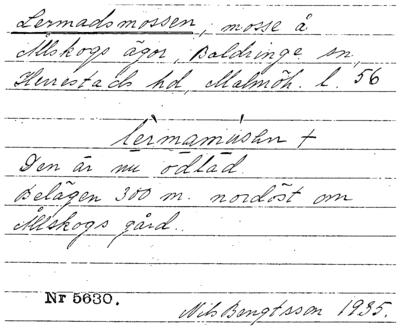 Lermadsmossen, mosse å
Allskogs ägor, Baldringe sn,
Herrestads hd, Malmöh. l. 56
lermamosen +
Den är nu ödlad
Belägen 300 m. nordöst om
Allskogs gård.
Nr 5630.
Nils Bengtsson 1935.